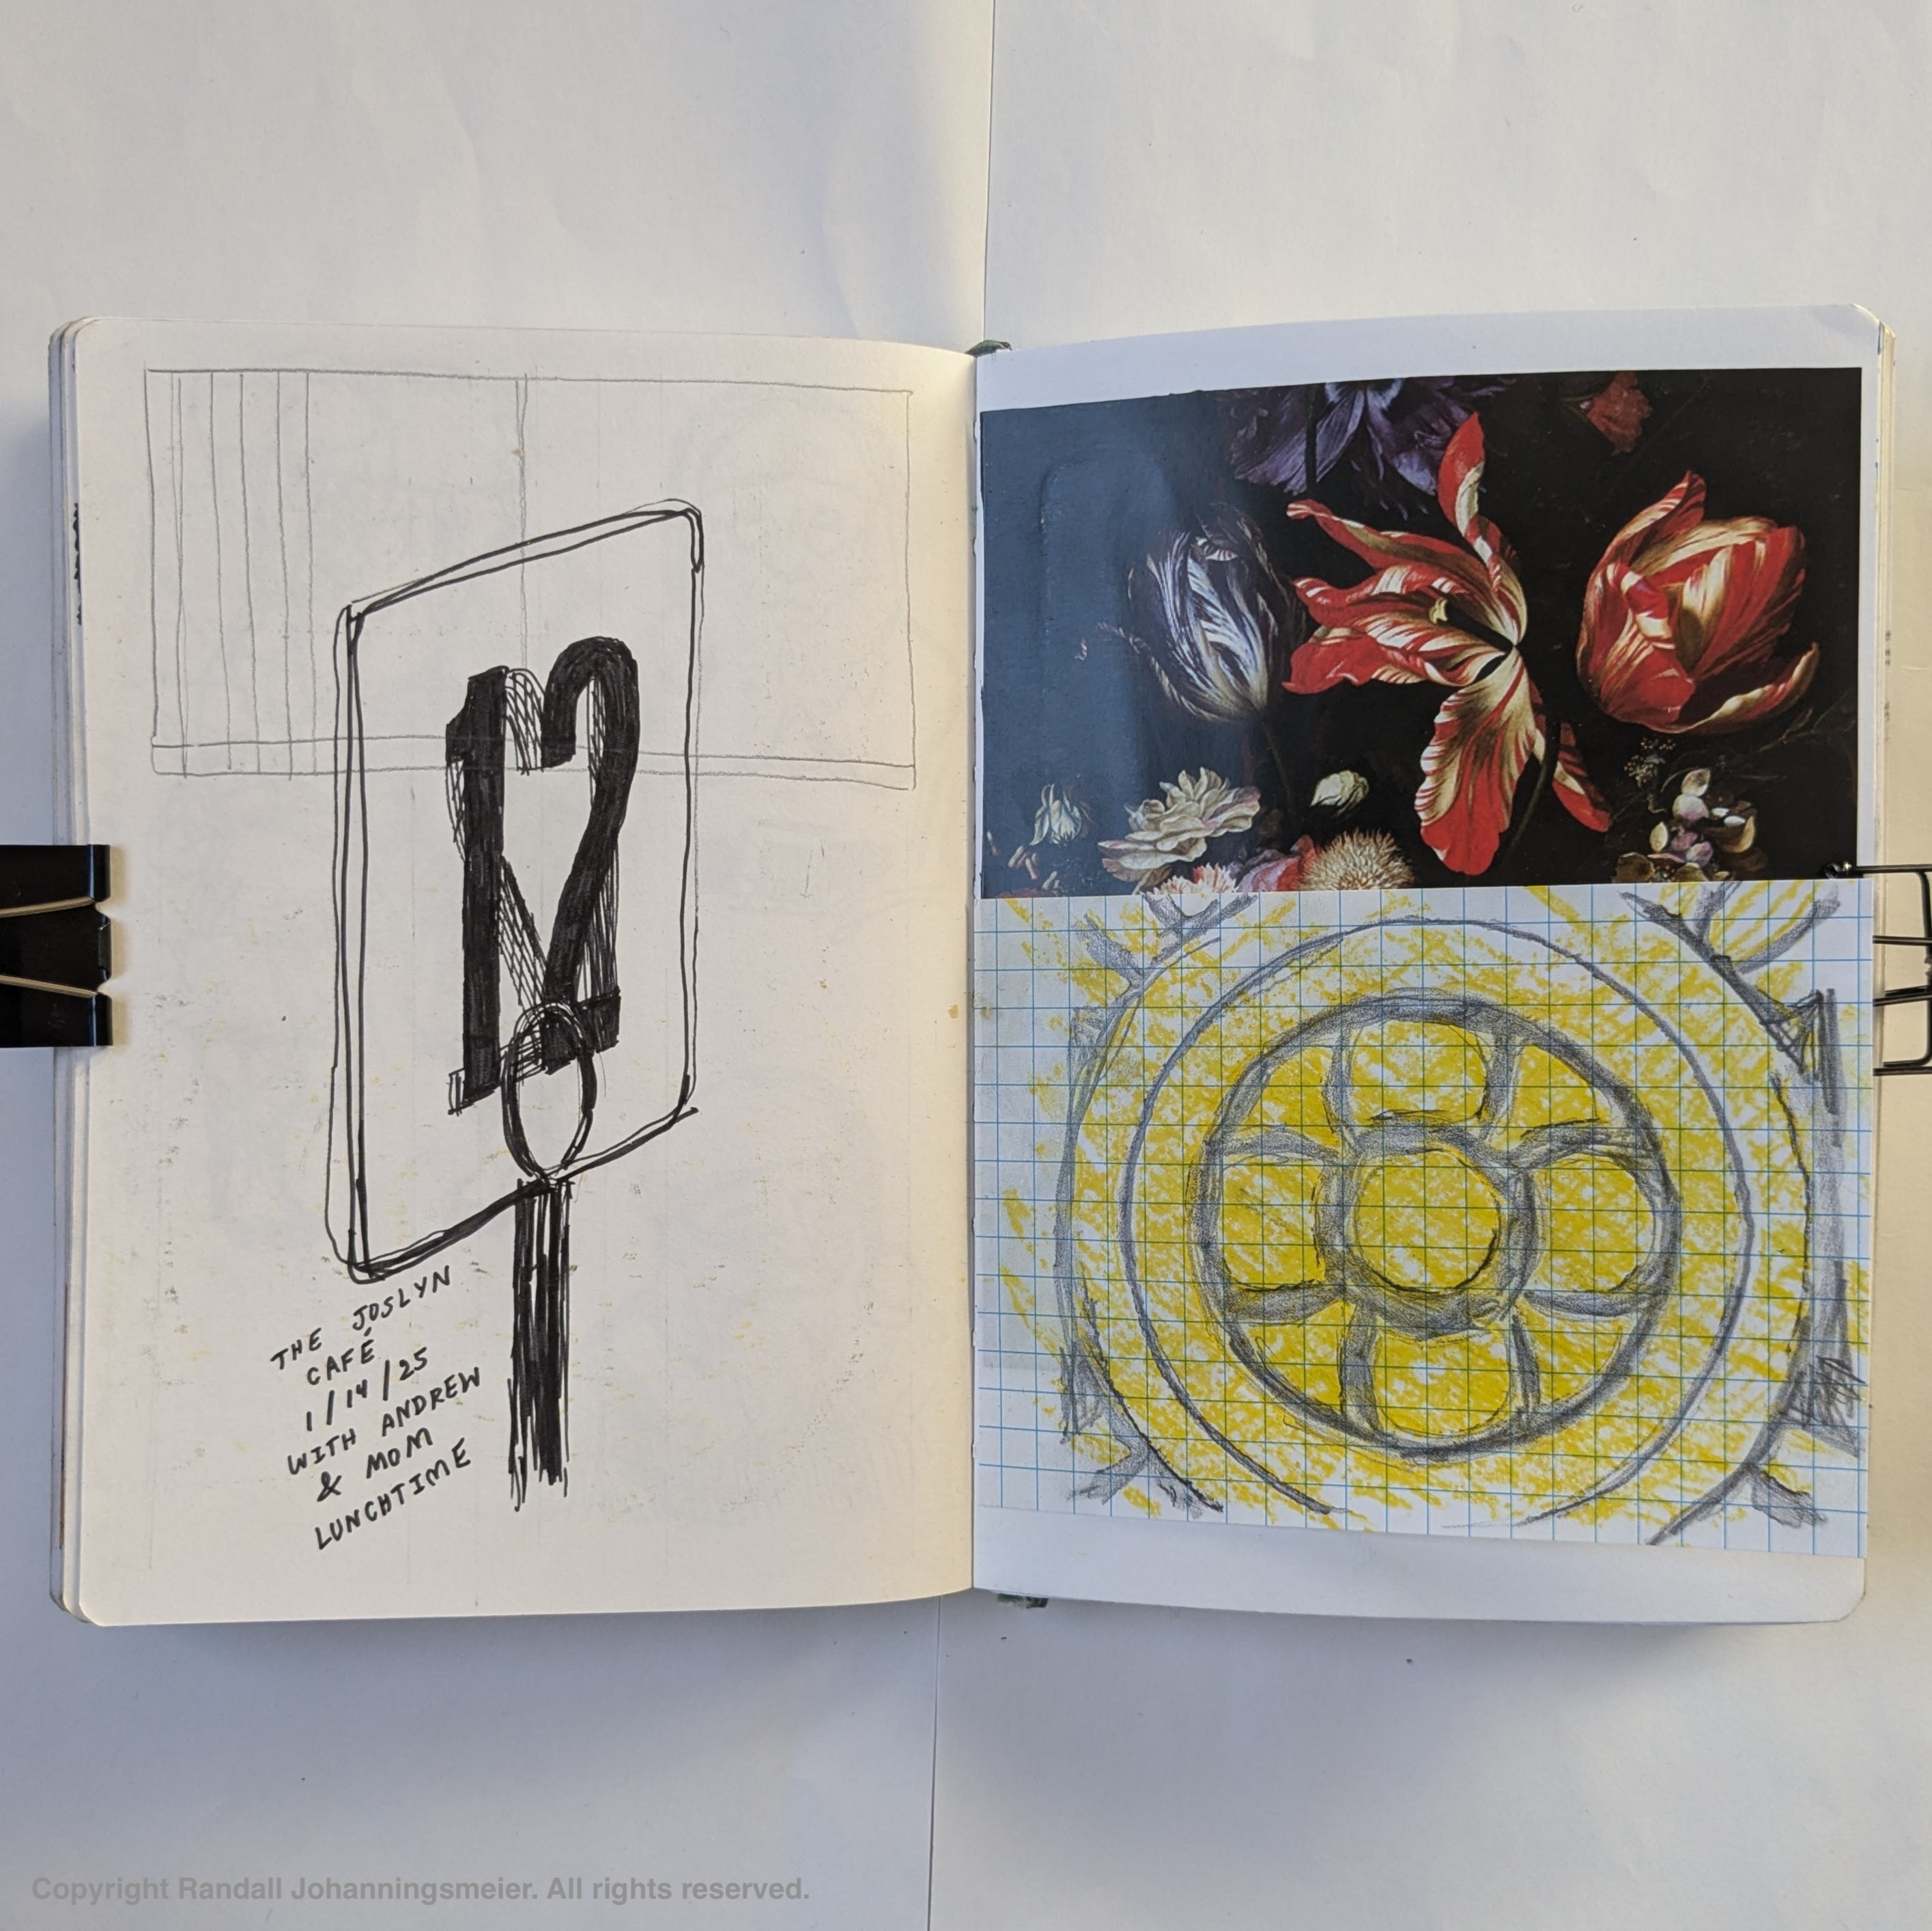 12
THE JOSLYN
CAFÉ
1/14/25
WITH ANDREW
& MOM
LUNCHTIME
Copyright Randall Johanningsmeier. All rights reserved.